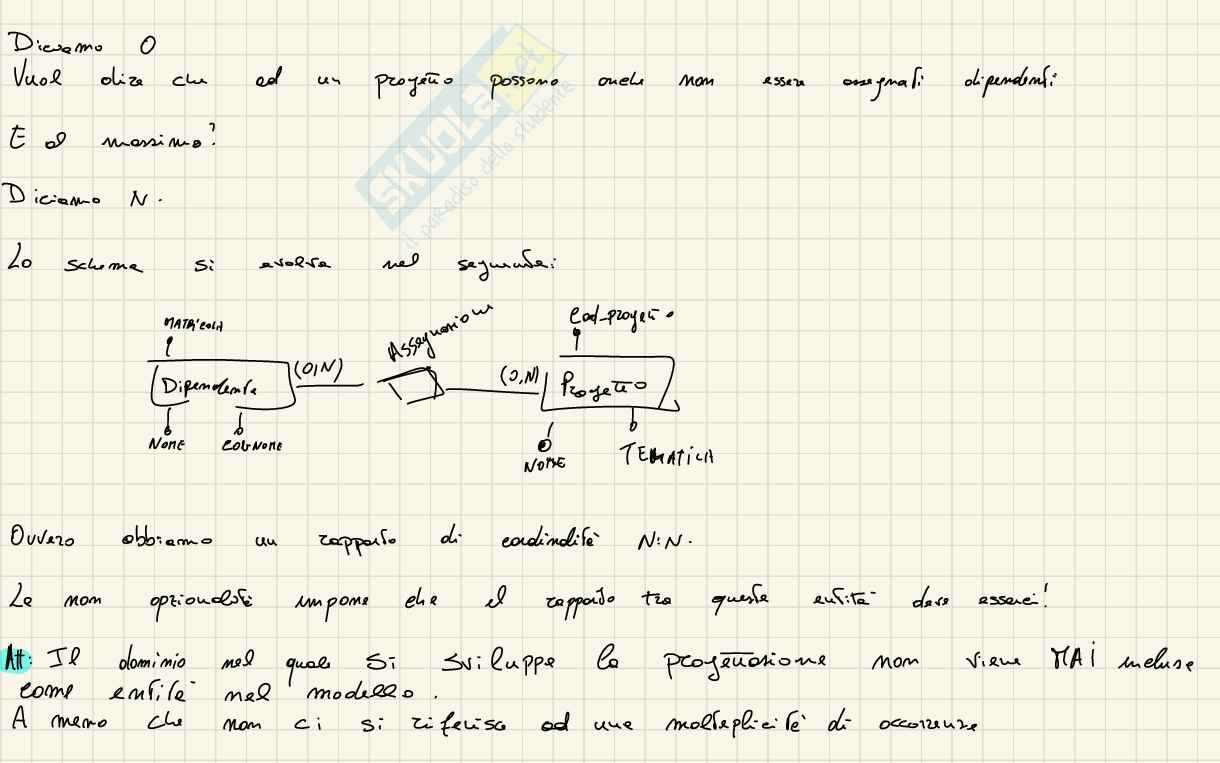 Diciamo 0
Vuol dire che ad un progetto possono anche non essere assegnati dipendenti
E al massimo?
Diciamo N.
Lo schema si evolve nel seguente:
MATRICOLA
Dipendente
NOME COGNOME
(0,N)
Assegnazione
(0,N)
Cod_progetto
Progetto
NOME TEMATICA
Ovvero abbiamo un rapporto di cardinalità N:N.
La non opzionalità impone che il rapporto tra queste entità deve esserci!
Att: Il dominio nel quale si sviluppa la progettazione non viene MAI incluse
come entità nel modello.
A meno che non ci si riferisca ad una molteplicità di occorrenze
SKUOLA.net
il paradiso dello studente